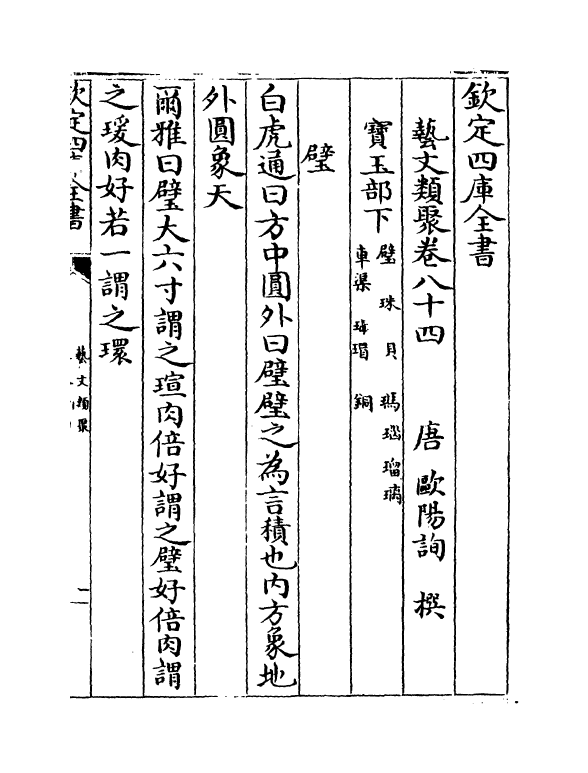 欽定四庫全書
藝文類聚卷八十四　唐　歐陽詢　撰
寶玉部下
璧　珠　貝　瑪瑙　瑠璃
車渠　瑇瑁　銅
璧
白虎通曰方中圓外曰璧璧之為言積也内方象地
外圓象天
爾雅曰璧大六寸謂之瑄肉倍好謂之璧好倍肉謂
之瑗肉好若一謂之環
欽定四庫全書
藝文類聚